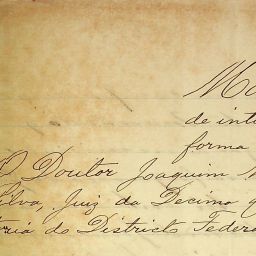 de
forma
O Doutor Joaquim
Silva, Juiz da Decima
do Districto Federa